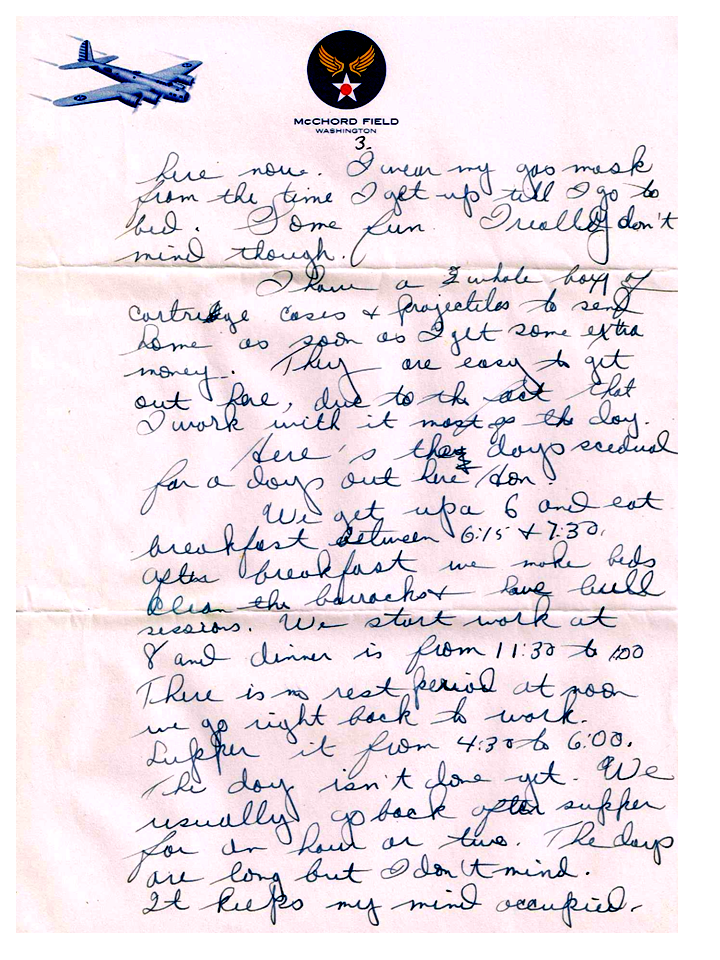 McCHORD FIELD
WASHINGTON
3.
here now. I wear my gas mask
from the time I get up till I go to
bed. Some fun. I really don't
mind though.
I have a whole box of
cartridge cases & projectiles to send
home as soon as I get some extra
money. They are easy to get
out here, due to the fact that
I work with it most of the day.
Here's the days scedual
for a days out here Hon.
We get up a 6 and eat
breakfast between 6:15 & 7:30.
after breakfast we make beds
clean the barracks & have bull
sessions. We start work at
8 and dinner is from 11:30 to 1:00
There is no rest period at noon
we go right back to work.
Supper it from 4:30 to 6:00.
The day isn't done yet. We
usually go back after supper
for an hour or two. The days
are long but I don't mind.
It keeps my mind occupied.